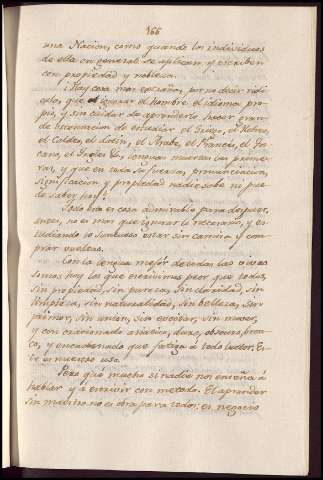 166
una Nacion, como quando los individuos
de ella en general se explican y escriben
con propiedad y nobleza.
¿Hay cosa mas extraña, por no decir ridi-
cula, que el ignorar el hombre el idioma pro-
pio, y sin cuidar de aprenderlo hacer gran-
de ostentacion de estudiar el Griego, el Hebreo,
el Caldeo, el Latin, el Arabe, el Francés, el Tos-
cano, el Ingles &c, lenguas muertas las prime-
ras, y que en toda su fuerza, pronunciacion,
significacion y propiedad nadie sabe ni pue-
de saber hoy?
Pero esta es cosa admirable para despues:
antes, no es mas que ignorar lo necesario, y es-
tudiando lo suntuoso estar sin camisa y com-
prar vueltas.
Con la lengua mejor de todas las vivas
somos hoy los que escrivimos peor que todos,
sin propiedad, sin pureza, sin claridad, sin
limpieza, sin naturalidad, sin belleza, sin
primor, sin union, sin escoger, sin mover,
y con oracionado asiatico, duro, obscuro, bron-
co, y encadenado que fatiga á todo lector. Es-
te es nuestro uso.
Pero qué mucho si nadie nos enseña á
hablar y a escrivir con metodo. El aprender
sin maestro no es obra para todos: es negocio